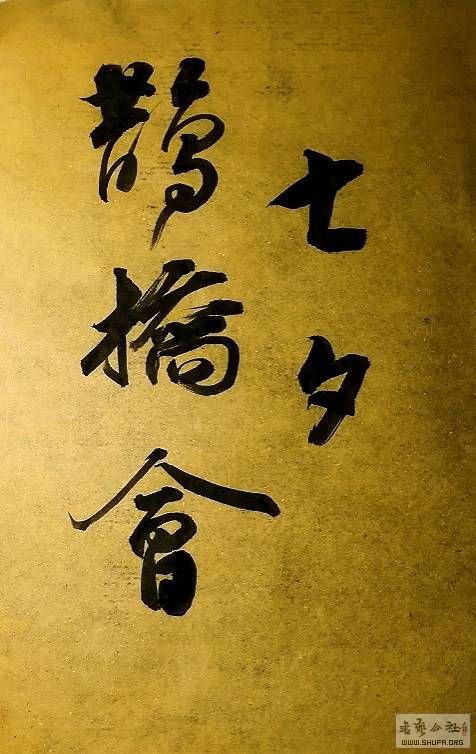 七夕
鵲橋會
书艺公社
WWW.SHUFA.ORG